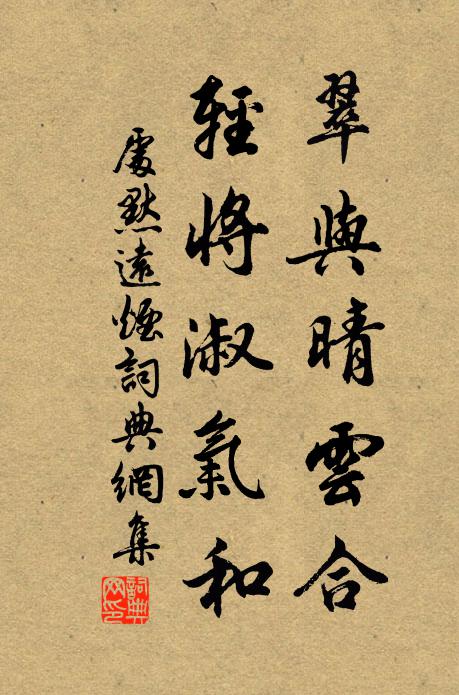 翠與晴雲合
輕將淑氣和
處默遠煙詞典網集
詞典網印